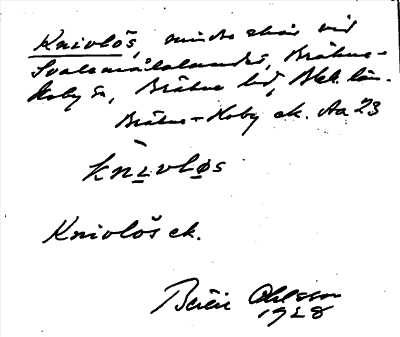 Knivlös, mindre skär vid
Svalemålalandet, Bräkne-
Hoby sn, Bräkne hd, Blek. län.
Bräkne-Hoby ek. Aa 23
knivløs
Knivlös ek.
Bertil Ohlsson
1928